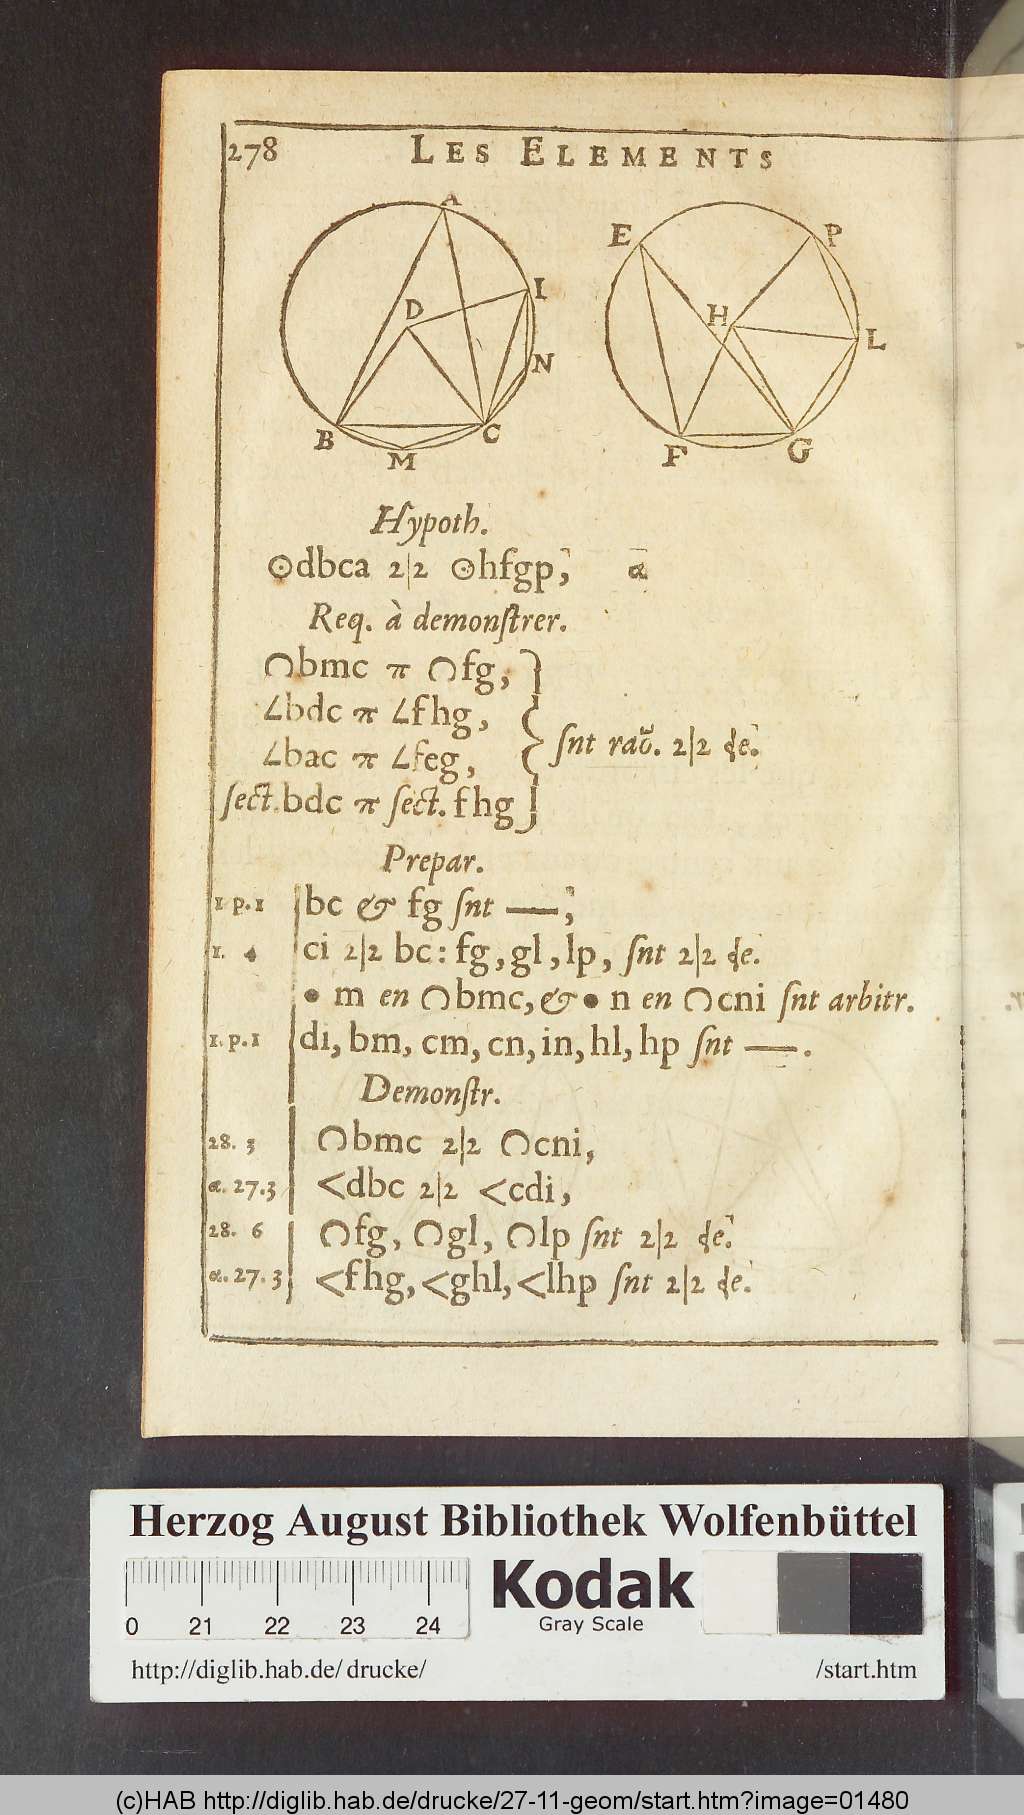 278 LES ELEMENTS
A
E P
D I H
N L
B C
M F G
Hypoth.
⊙dbca 2|2 ⊙hfgp; α
Req. à demonſtrer.
∩bmc π ∩fg,
∠bdc π ∠fhg,
ſnt raõ. 2|2 de.
∠bac π ∠feg,
ſect. bdc π ſect. fhg
Prepar.
1. p. 1 bc & fg ſnt —;
1. 4 ci 2|2 bc: fg, gl, lp, ſnt 2|2 de.
• m en ∩bmc, & • n en ∩cni ſnt arbitr.
1. p. 1 di, bm, cm, cn, in, hl, hp ſnt —.
Demonſtr.
28. 3 ∩bmc 2|2 ∩cni,
α. 27. 3 <dbc 2|2 <cdi,
28. 6 ∩fg, ∩gl, ∩lp ſnt 2|2 de.
α. 27. 3 <fhg, <ghl, <lhp ſnt 2|2 de.
Herzog August Bibliothek Wolfenbüttel
0 21 22 23 24
Kodak
Gray Scale
http://diglib.hab.de/ drucke/ /start.htm
(c)HAB http://diglib.hab.de/drucke/27-11-geom/start.htm?image=01480